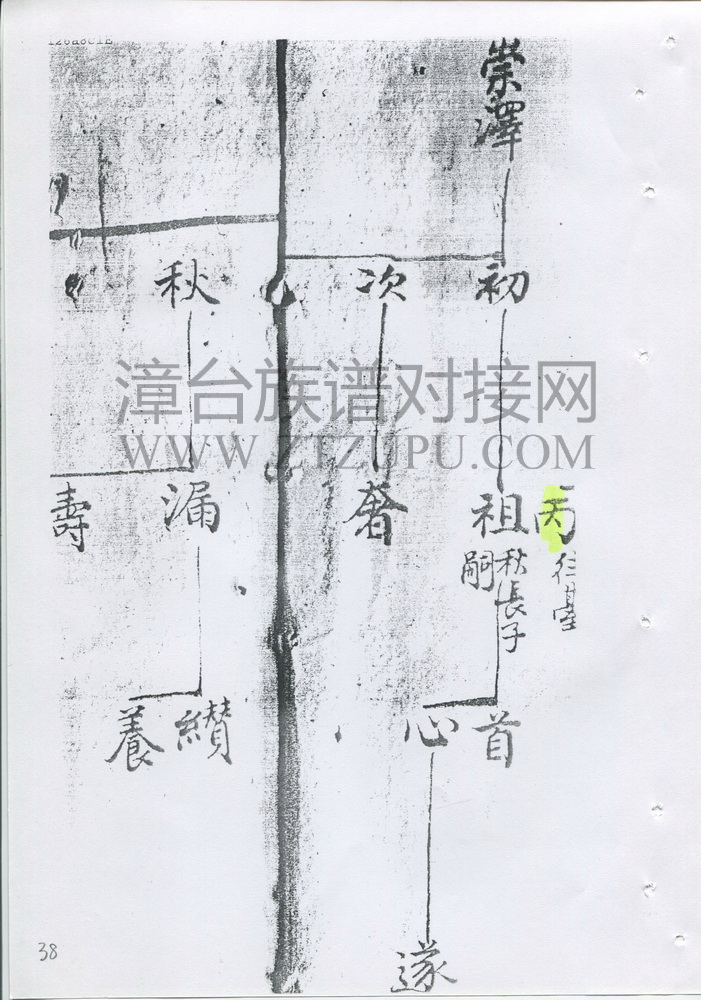 崇澤
初
次
秋
漳台族谱对接网
WWW.ZTZUPU.COM
丙
往臺
祖
秋長子
嗣
奢
漏
壽
首
心
纘
養
遂
38